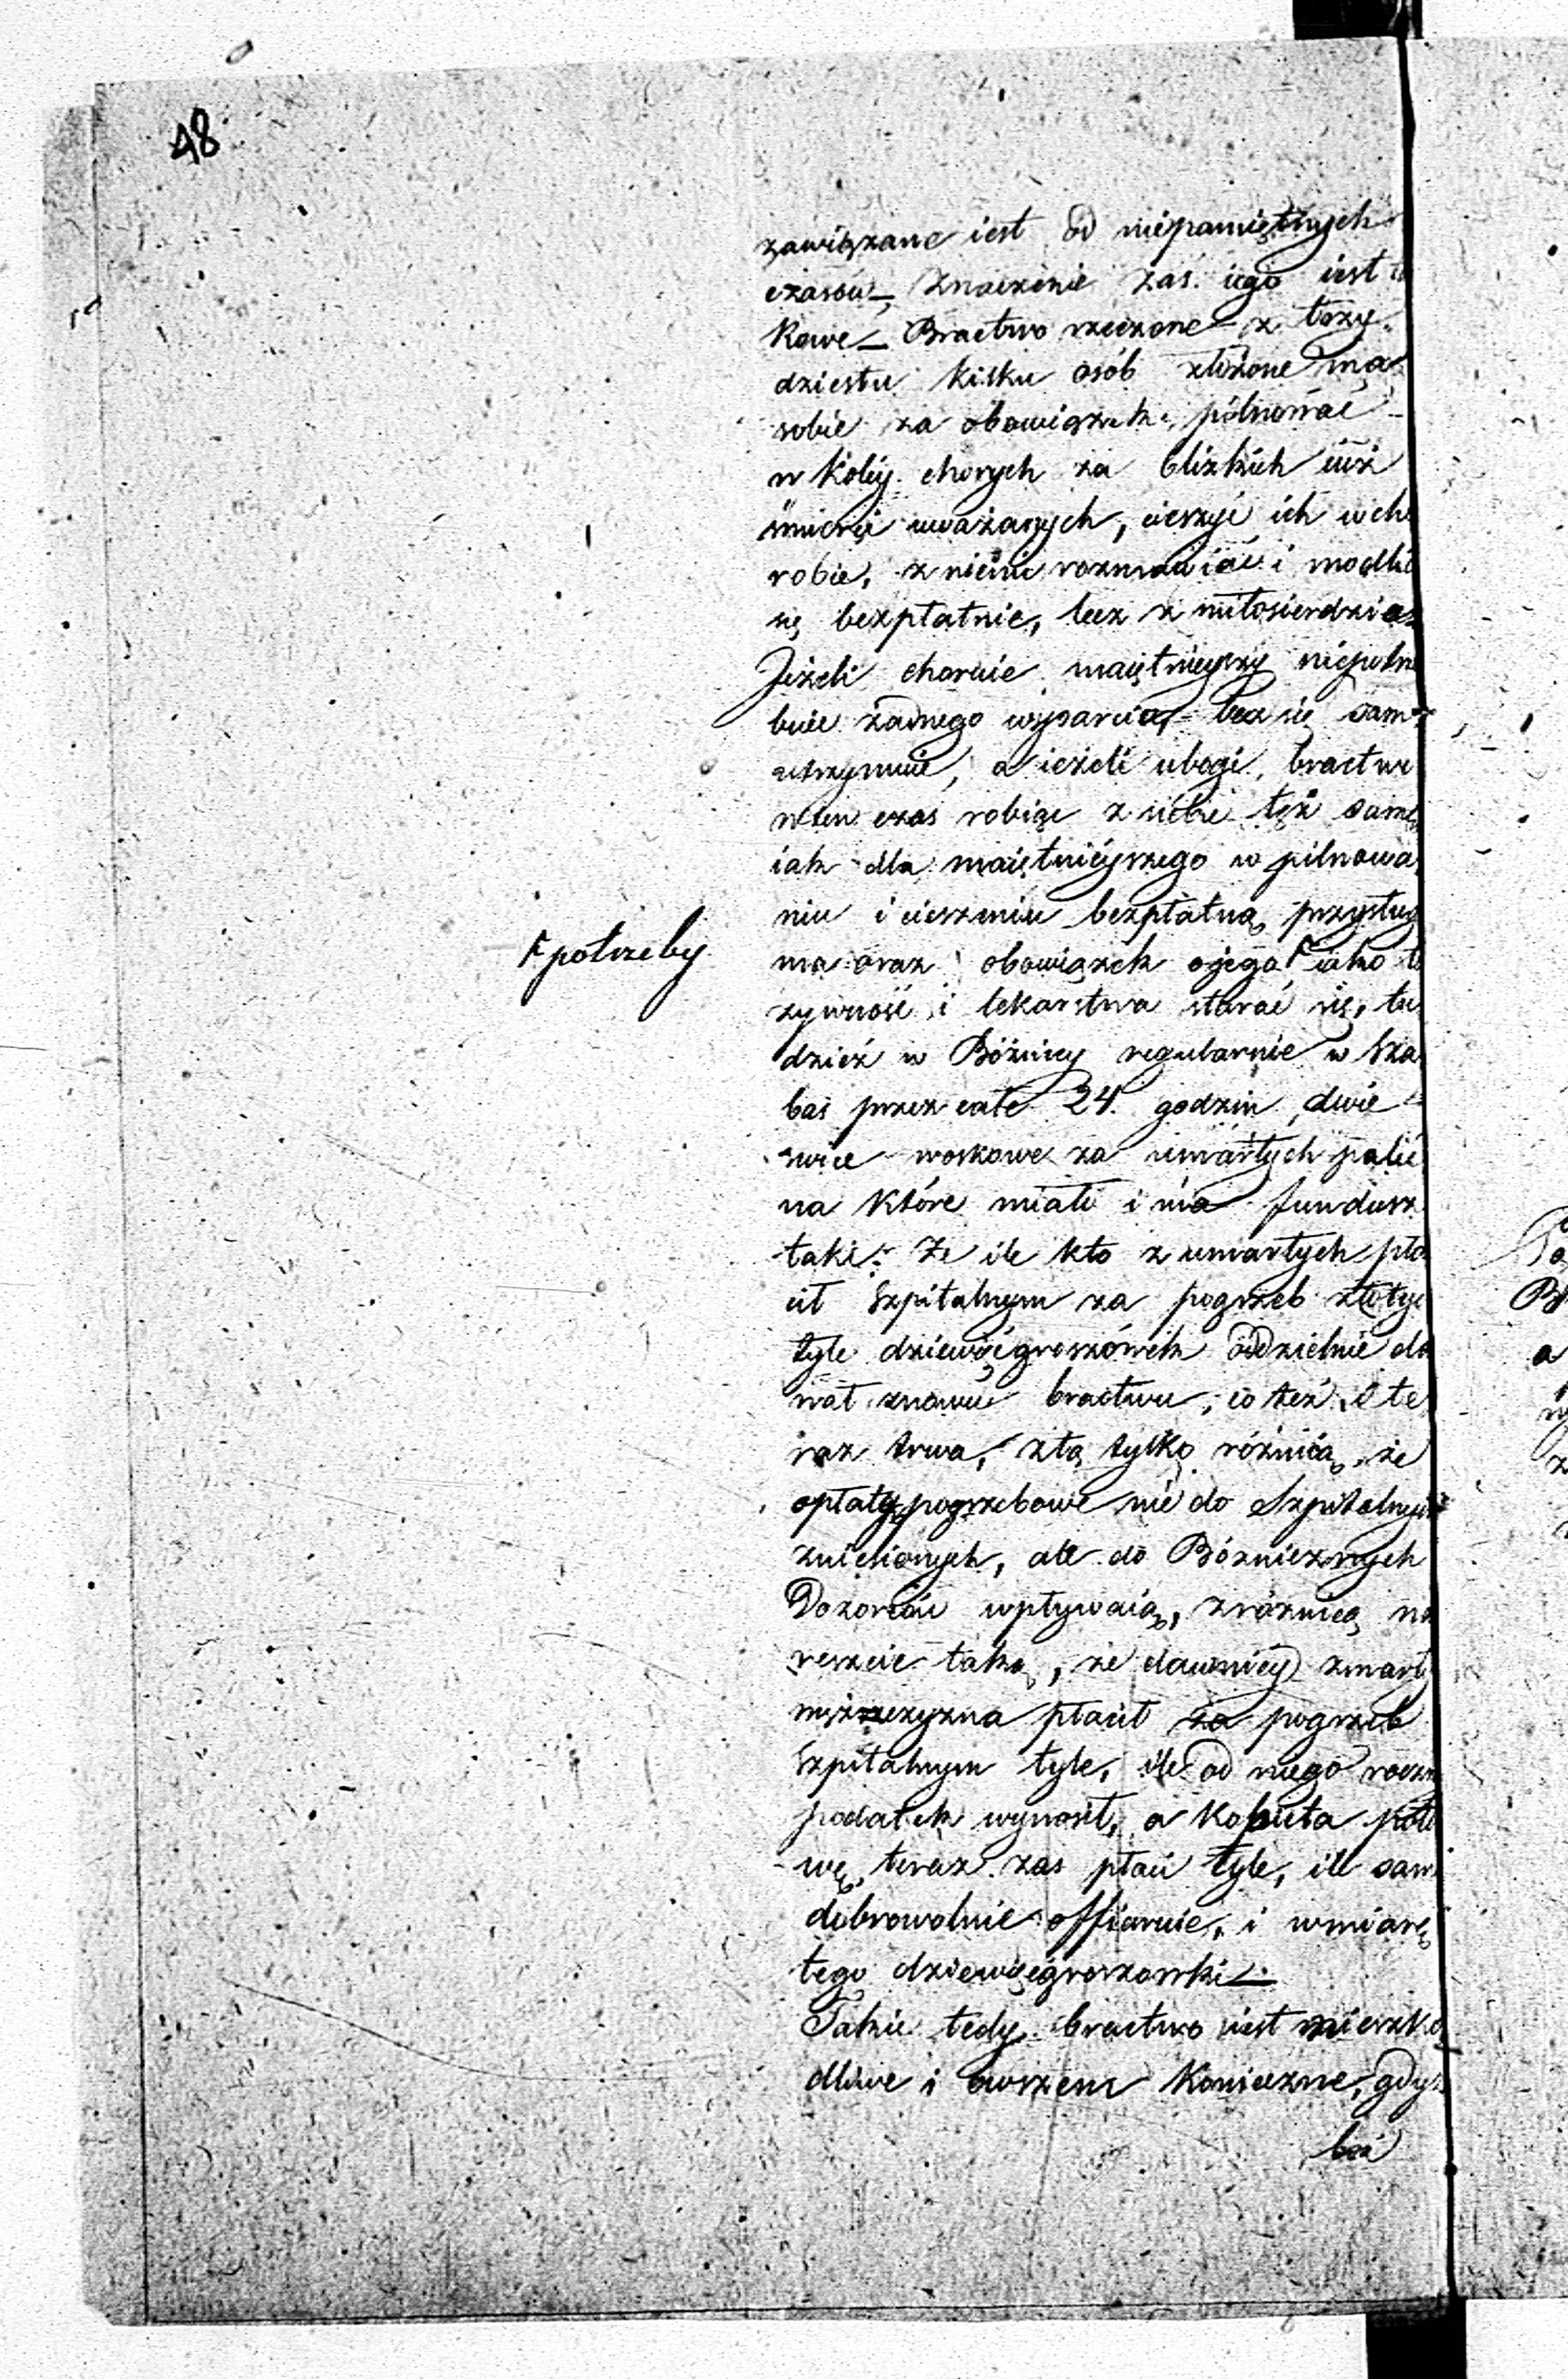 48
zawiązane iest od niepamiętnych
czasów, Znaczenie zaś iego iest ta
kowe – Bractwo rzeczone z trzy-
dziestu kilku osób złożone ma
sobie za obowiązek, pilnować
w koley chorych za blizkich iuż
śmierci uważanych, cieszyć ich w cho
robie, z niemi rozmawiać i modlić
się bezpłatnie, lecz z miłosierdzia
Jeżeli choruie maiętnieyszy niepotrze
buie żadnego wsparcia, lecz się sam
utrzymuie, a ieżeli ubogi, bractwo
w ten czas robiąc z siebie tęż samę
iak dla maiętnieyszego w pilnowa
niu i cieszeniu bezpłatną przysług
ma oraz obowiązek o jego ⌈ iako to
⌈ potrzeby
żywność i lekarstwa starać się, tu
dzież w Bóżnicy regularnie w Sza
bas przez całe 24. godzin dwie
swice woskowe za umarłych palić
na które miało i ma fundusz
taki: że ile kto z umarłych pła
cił Szpitalnym za pogrzeb złotych
tyle dziewięćgroszówek oddzielnie da
wał znowu bractwu, co też i te
raz trwa, z tą tylko różnicą, że
opłaty pogrzebowe nie do Szpitalnych
zniesionych, ale do Bóżniczych
Dozorców wpływaią, z różnicą na
reszcie taką, że dawniey zmarły
mężczyzna płacił za pogrzeb
Szpitalnym tyle, ile od niego roczny
podatek wynosił, a kobieta poło
wę, teraz zas płaci tyle, ile sam
dobrowolnie offiaruie, i w miarę
tego dziewięćgroszowki –
Takie tedy bractwo iest nieszko
dliwe i owszem konieczne, gdyż
bez